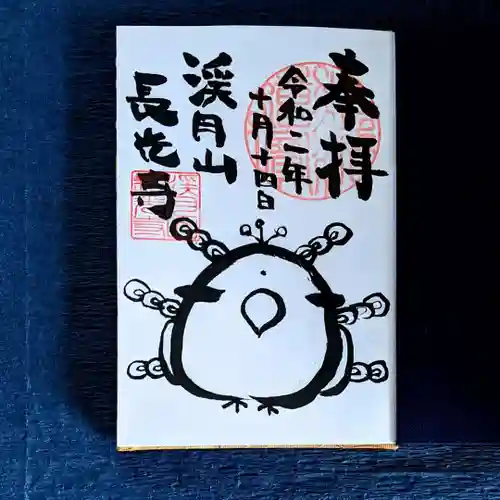 奉拝
令和二年
十月十四日
渓月山
長光寺